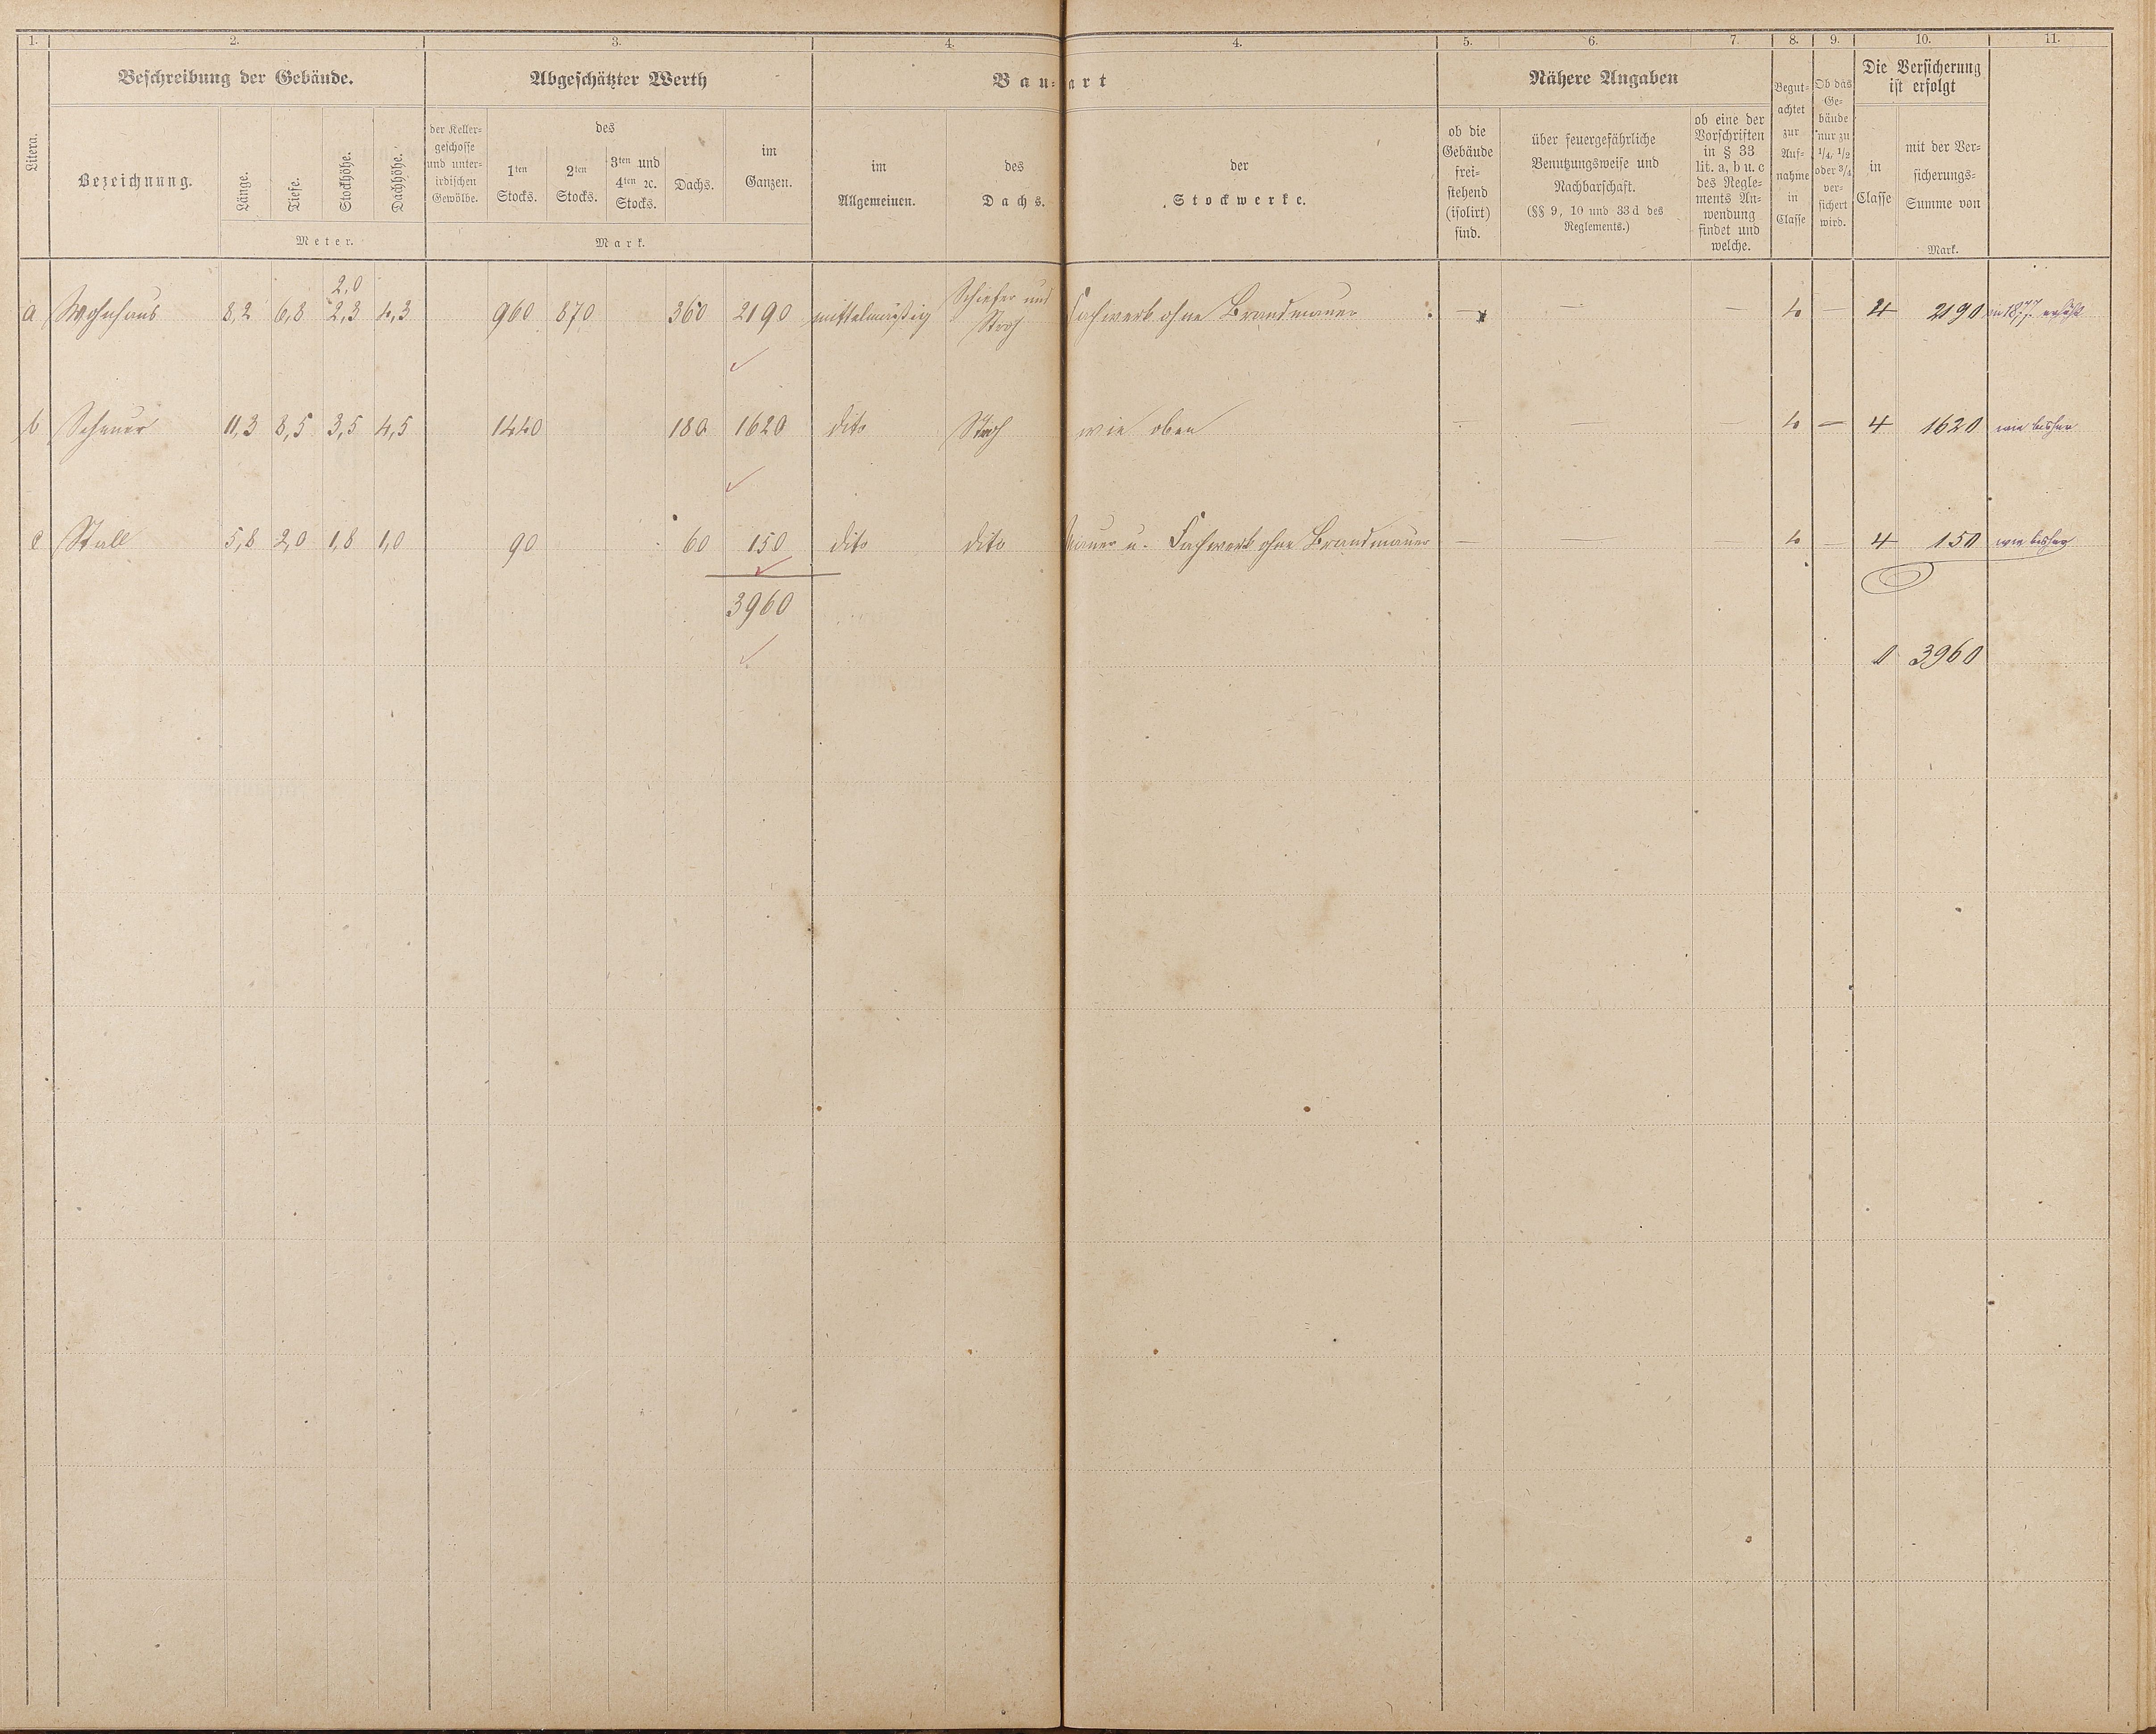 1. 2. 3. 4. 4. 5. 6. 7. 8. 9. 10. 11.
Beschreibung der Gebäude. Abgeschätzter Werth Bau-art Nähere Angaben
Litera.
Bezeichnung.
Länge.
Tiefe.
Stockhöhe.
Dachhöhe.
Meter.
der Keller-
geschosse
und unter-
irdischen
Gewölbe.
des
1ten
Stocks.
2ten
Stocks.
3ten und
4ten ꝛc.
Stocks.
Dachs.
im
Ganzen.
Mark.
im
Allgemeinen.
des
Dachs.
der
Stockwerke.
ob die
Gebäude
frei-
stehend
(isolirt)
sind.
über feuergefährliche
Benutzungsweise und
Nachbarschaft.
(§§ 9, 10 und 33 d des
Reglements.)
ob eine der
Vorschriften
in § 33
lit. a, b u. c
des Regle-
ments An-
wendung
findet und
welche.
Begut-
achtet
zur
Auf-
nahme
in
Classe
Ob das
Ge-
bäude
nur zu
1/4, 1/2
oder 3/4
ver-
sichert
wird.
Die Versicherung
ist erfolgt
in
Classe
mit der Ver-
sicherungs-
Summe von
Mark.
2,0
a Wohnhaus 8,2 6,8 2,3 4,3 960 870 360 2190 mittelmäßig Schiefer und
Stroh Fachwerk ohne Brandmauer — — — 4 — 4 2190 in 1877 erhöht
b Scheuer 11,3 8,5 3,5 4,5 1440 180 1620 dito Stroh wie oben — — — 4 — 4 1620 wie bisher
c Stall 5,8 2,0 1,8 1,0 90 60 150 dito dito Mauer u. Fachwerk ohne Brandmauer — — 4 — 4 150 wie bisher
3960
3960